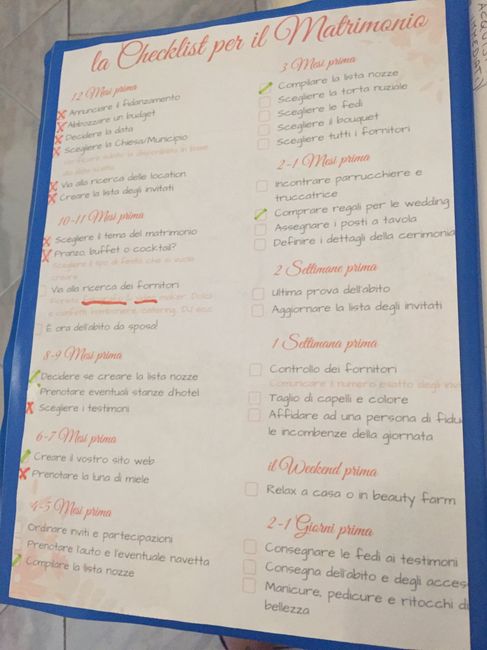 la Checklist per il Matrimonio
12 Mesi prima
Annunciare il fidanzamento
Abbozzare un budget
Decidere la data
Scegliere la Chiesa/Municipio
Via alla ricerca delle location
Creare la lista degli invitati
10-11 Mesi prima
Scegliere il tema del matrimonio
Pranzo, buffet o cocktail?
Scegliere il tipo di festa che si vuole
creare
Via alla ricerca dei fornitori
maker. Dolci
e confetti, bomboniere, catering, DJ ecc.
È ora dell'abito da sposa!
8-9 Mesi prima
Decidere se creare la lista nozze
Prenotare eventuali stanze d'hotel
Scegliere i testimoni
6-7 Mesi prima
Creare il vostro sito web
Prenotare la luna di miele
4-5 Mesi prima
Ordinare inviti e partecipazioni
Prenotare l'auto e l'eventuale navetta
Compilare la lista nozze
3 Mesi prima
Compilare la lista nozze
Scegliere la torta nuziale
Scegliere le fedi
Scegliere il bouquet
Scegliere tutti i fornitori
2-1 Mesi prima
Incontrare parrucchiere e
truccatrice
Comprare regali per le wedding
Assegnare i posti a tavola
Definire i dettagli della cerimonia
2 Settimane prima
Ultima prova dell'abito
Aggiornare la lista degli invitati
1 Settimana prima
Controllo dei fornitori
Comunicare il numero esatto degli invi
Taglio di capelli e colore
Affidare ad una persona di fidu
le incombenze della giornata
il Weekend prima
Relax a casa o in beauty farm
2-1 Giorni prima
Consegnare le fedi ai testimoni
Consegna dell'abito e degli acces
Manicure, pedicure e ritocchi di
bellezza